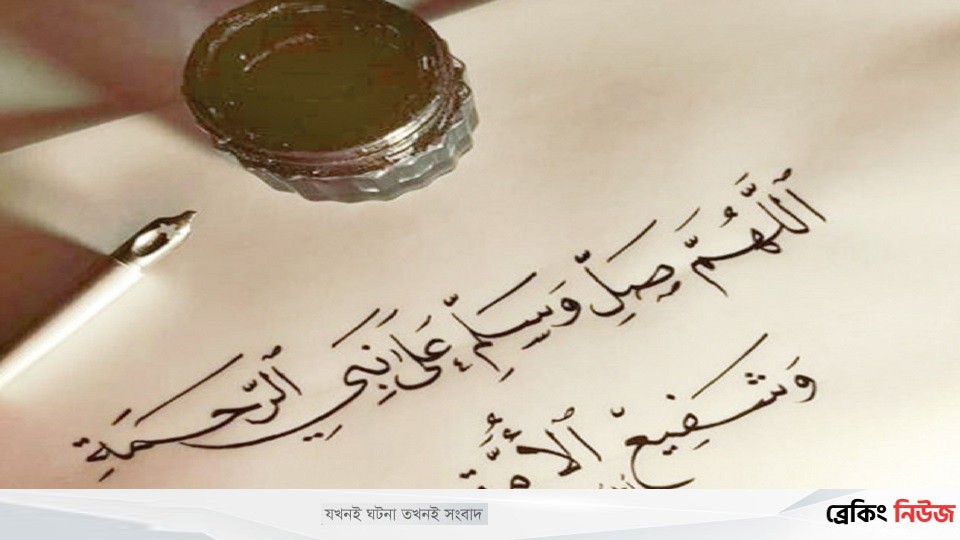 اَللَّهُمَّ صَلِّ وَسَلِّمْ عَلَى نَبِيِّ الرَّحْمَةِ
وَشَفِيعِ الْأُمَّةِ
যখনই ঘটনা তখনই সংবাদ
ব্রেকিং নিউজ